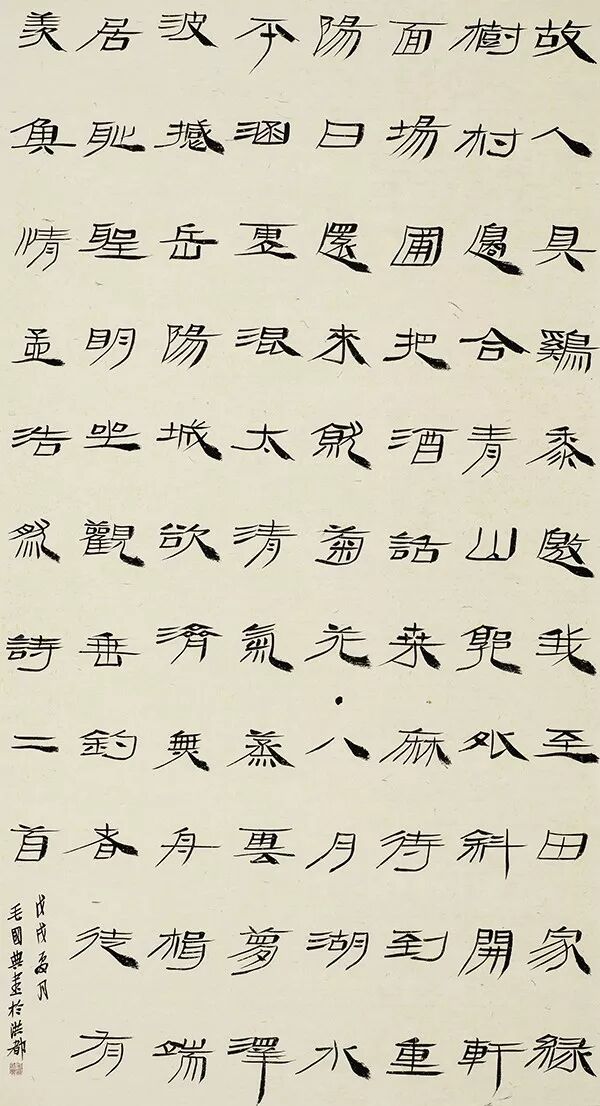 故人具鷄黍邀我至田家緑
樹村邊合青山郭外斜開軒
面場圃把酒話桑麻待到重
陽日還來就菊花八月湖水
平涵更混太清氣蒸雲夢澤
波撼岳陽城欲濟無舟楫端
居恥聖明坐觀垂釣者徒有
羨魚情孟浩然詩二首
戊戌夏月
毛國典書於洪都